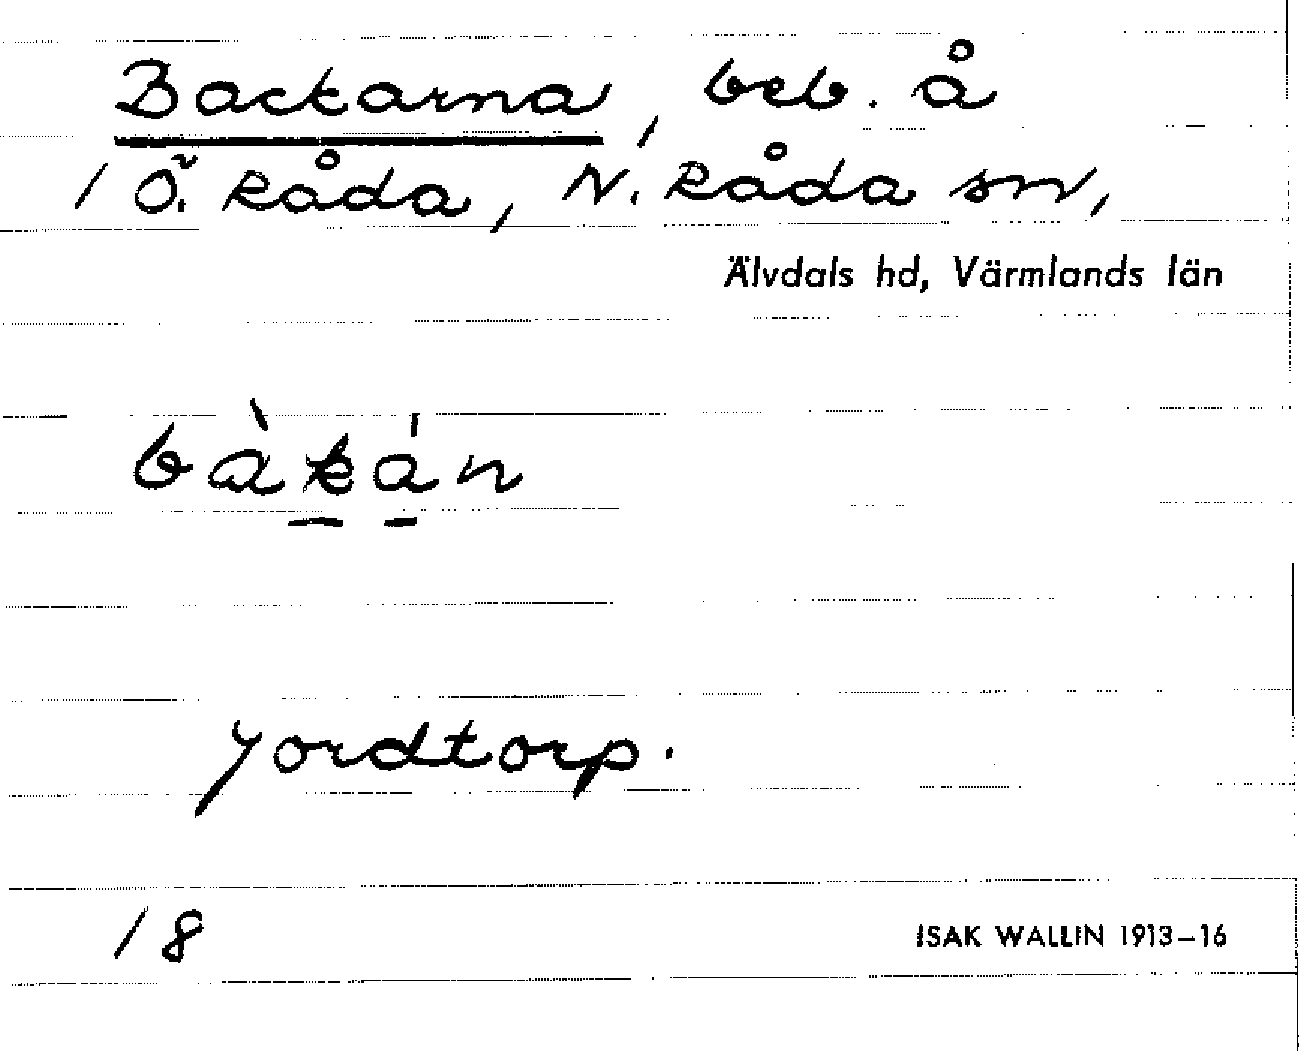 Backarna, beb. å
1 Ö. Råda, N. Råda sn,
Älvdals hd, Värmlands län
bàkán
Jordtorp.
18
ISAK WALLIN 1913–16